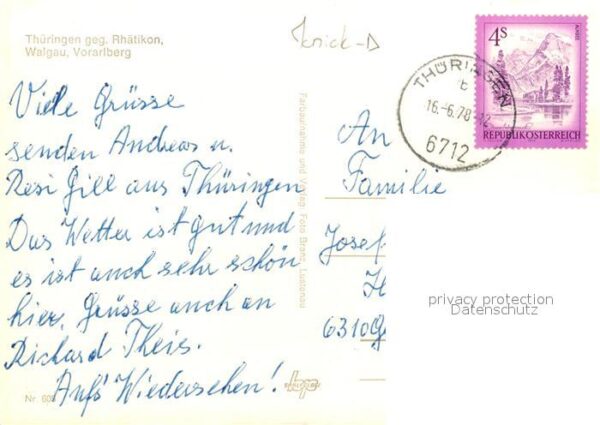 Thüringen geg. Rhätikon,
Walgau, Vorarlberg
Knick-D
4S
ALMSEE
REPUBLIK ÖSTERREICH
THÜRINGEN
16.-6.78-12
6712
Viele Grüsse
senden Andreas u.
Resi Gill aus Thüringen
Das Wetter ist gut und
es ist auch sehr schön
hier, Grüsse auch an
Richard Theis.
Aufs Wiedersehen!
Nr. 608
Farbaufnahme und Verlag Foto Branz, Lustenau
An
Familie
Josef
H
6310 G
privacy protection
Datenschutz